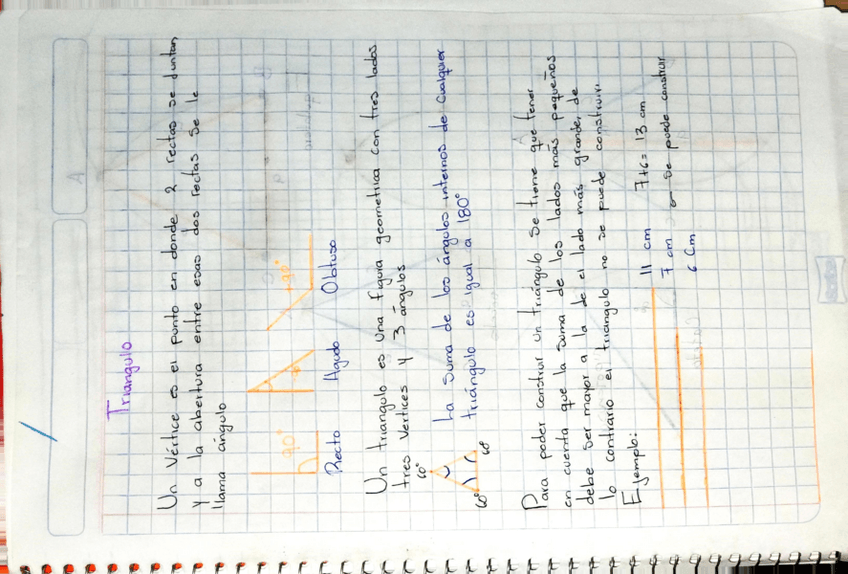 Triangulo
Un Vértice es el punto en donde 2 rectas se juntan,
y a la abertura entre esas dos rectas se le
llama ángulo
90° -90° +90°
Recto Agudo Obtuso
Un triangulo es una figura geometrica con tres lados
tres vertices y 3 ángulos
60° 60° 60°
La suma de los ángulos internos de cualquier
triángulo es igual a 180°
Para poder construir un triángulo se tiene que tener
en cuenta que la suma de los lados más pequeños
debe ser mayor a la de el lado más grande, de
lo contrario el triangulo no se puede construir.
Ejemplo:
11 cm 7+6= 13 cm
7 cm se puede construir
6 Cm